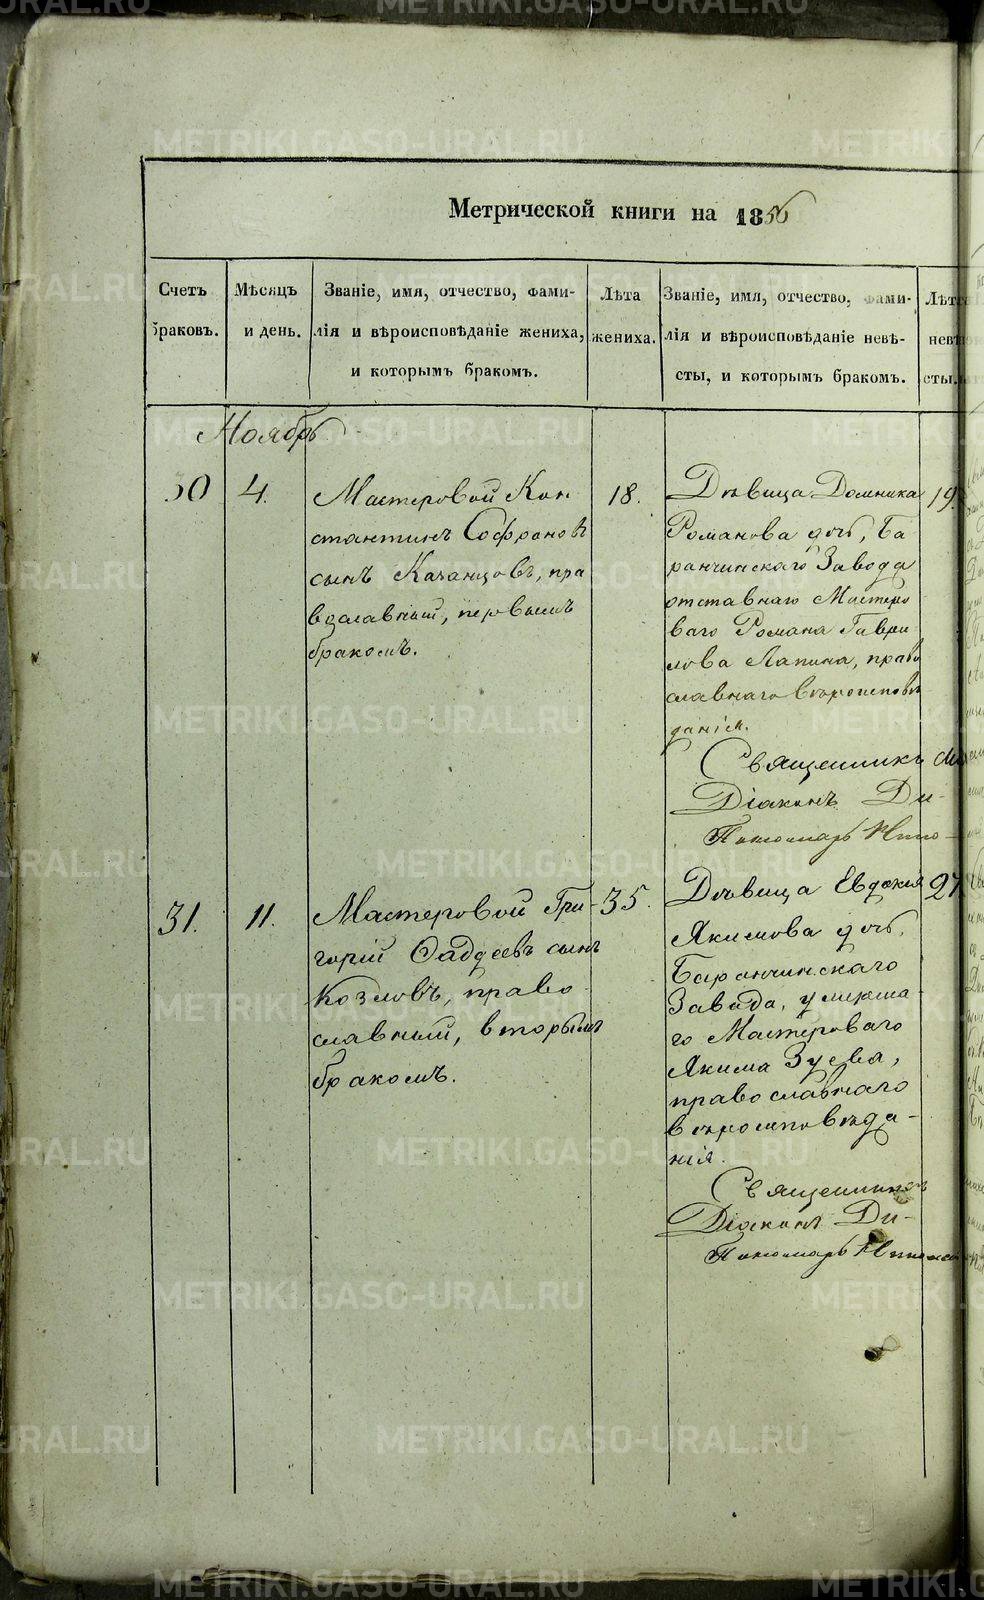 Метрической книги на 1856
Счетъ браковъ.
Мѣсяцъ и день.
Званіе, имя, отчество, фами-
лія и вѣроисповѣданіе жениха,
и которымъ бракомъ.
Лѣта жениха.
Званіе, имя, отчество, фами-
лія и вѣроисповѣданіе невѣ-
сты, и которымъ бракомъ.
Лѣта
невѣ
сты.
Ноябрь
30
4.
Мастеровой Кон
стантинъ Софроновъ
сынъ Казанцовъ, пра
вославный, первымъ
бракомъ.
18.
Дѣвица Домника
Романова дочь, Ба
ранчинскаго Завода
отставнаго Мастеро
ваго Романа Гаври
лова Лапина, право
славнаго вѣроисповѣ
данія.
19.
Священникъ
Діаконъ Ди-
Пономарь
31.
11.
Мастеровой Гри-
горій Фаддеевъ сынъ
Козловъ, право
славный, вторымъ
бракомъ.
35.
Дѣвица Евдокия
Якимова дочь,
Баранчинскаго
Завода, умерша-
го Мастероваго
Якима Зуева,
православнаго
вѣроисповѣда-
нія.
27
Священникъ
Діаконъ Ди-
Пономарь
METRIKI.GASO-URAL.RU